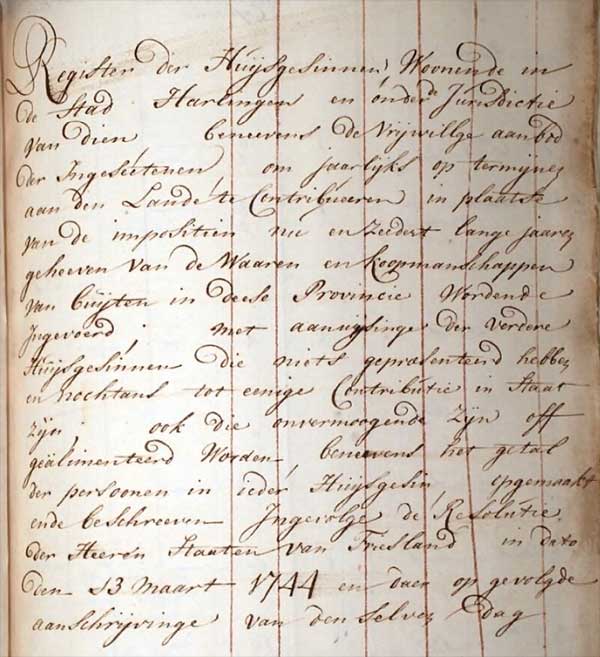 Register der Huijsgesinnen, Woonende in
de Stad Harlingen en onder de Jurisdictie
van dien beneevens de Vrijwillge aanbod
der Ingeseetenen om jaarlijks op termijnen
aan den Lande te Contribueeren in plaatse
van de impositien nu en Zeedert lange jaaren
geheeven van de Waaren en koopmanschappen
van buijten in deese Provincie Wordende
Ingevoerd; met aanwijsinge der verdere
Huijsgesinnen die niets gepraesenteerd hebben
en nochtans tot eenige Contributie in Staat
zijn; ook die onvermoogende zijn off
geälimenteerd Worden, beneevens het getal
der persoonen in ieder Huijsgesin opgemaakt
ende beschreeven Ingevolge de Resolutie
der Heeren Staaten van Friesland in dato
den 13 Maart 1744 en daer op gevolgde
aanschrijvinge van den selven dag